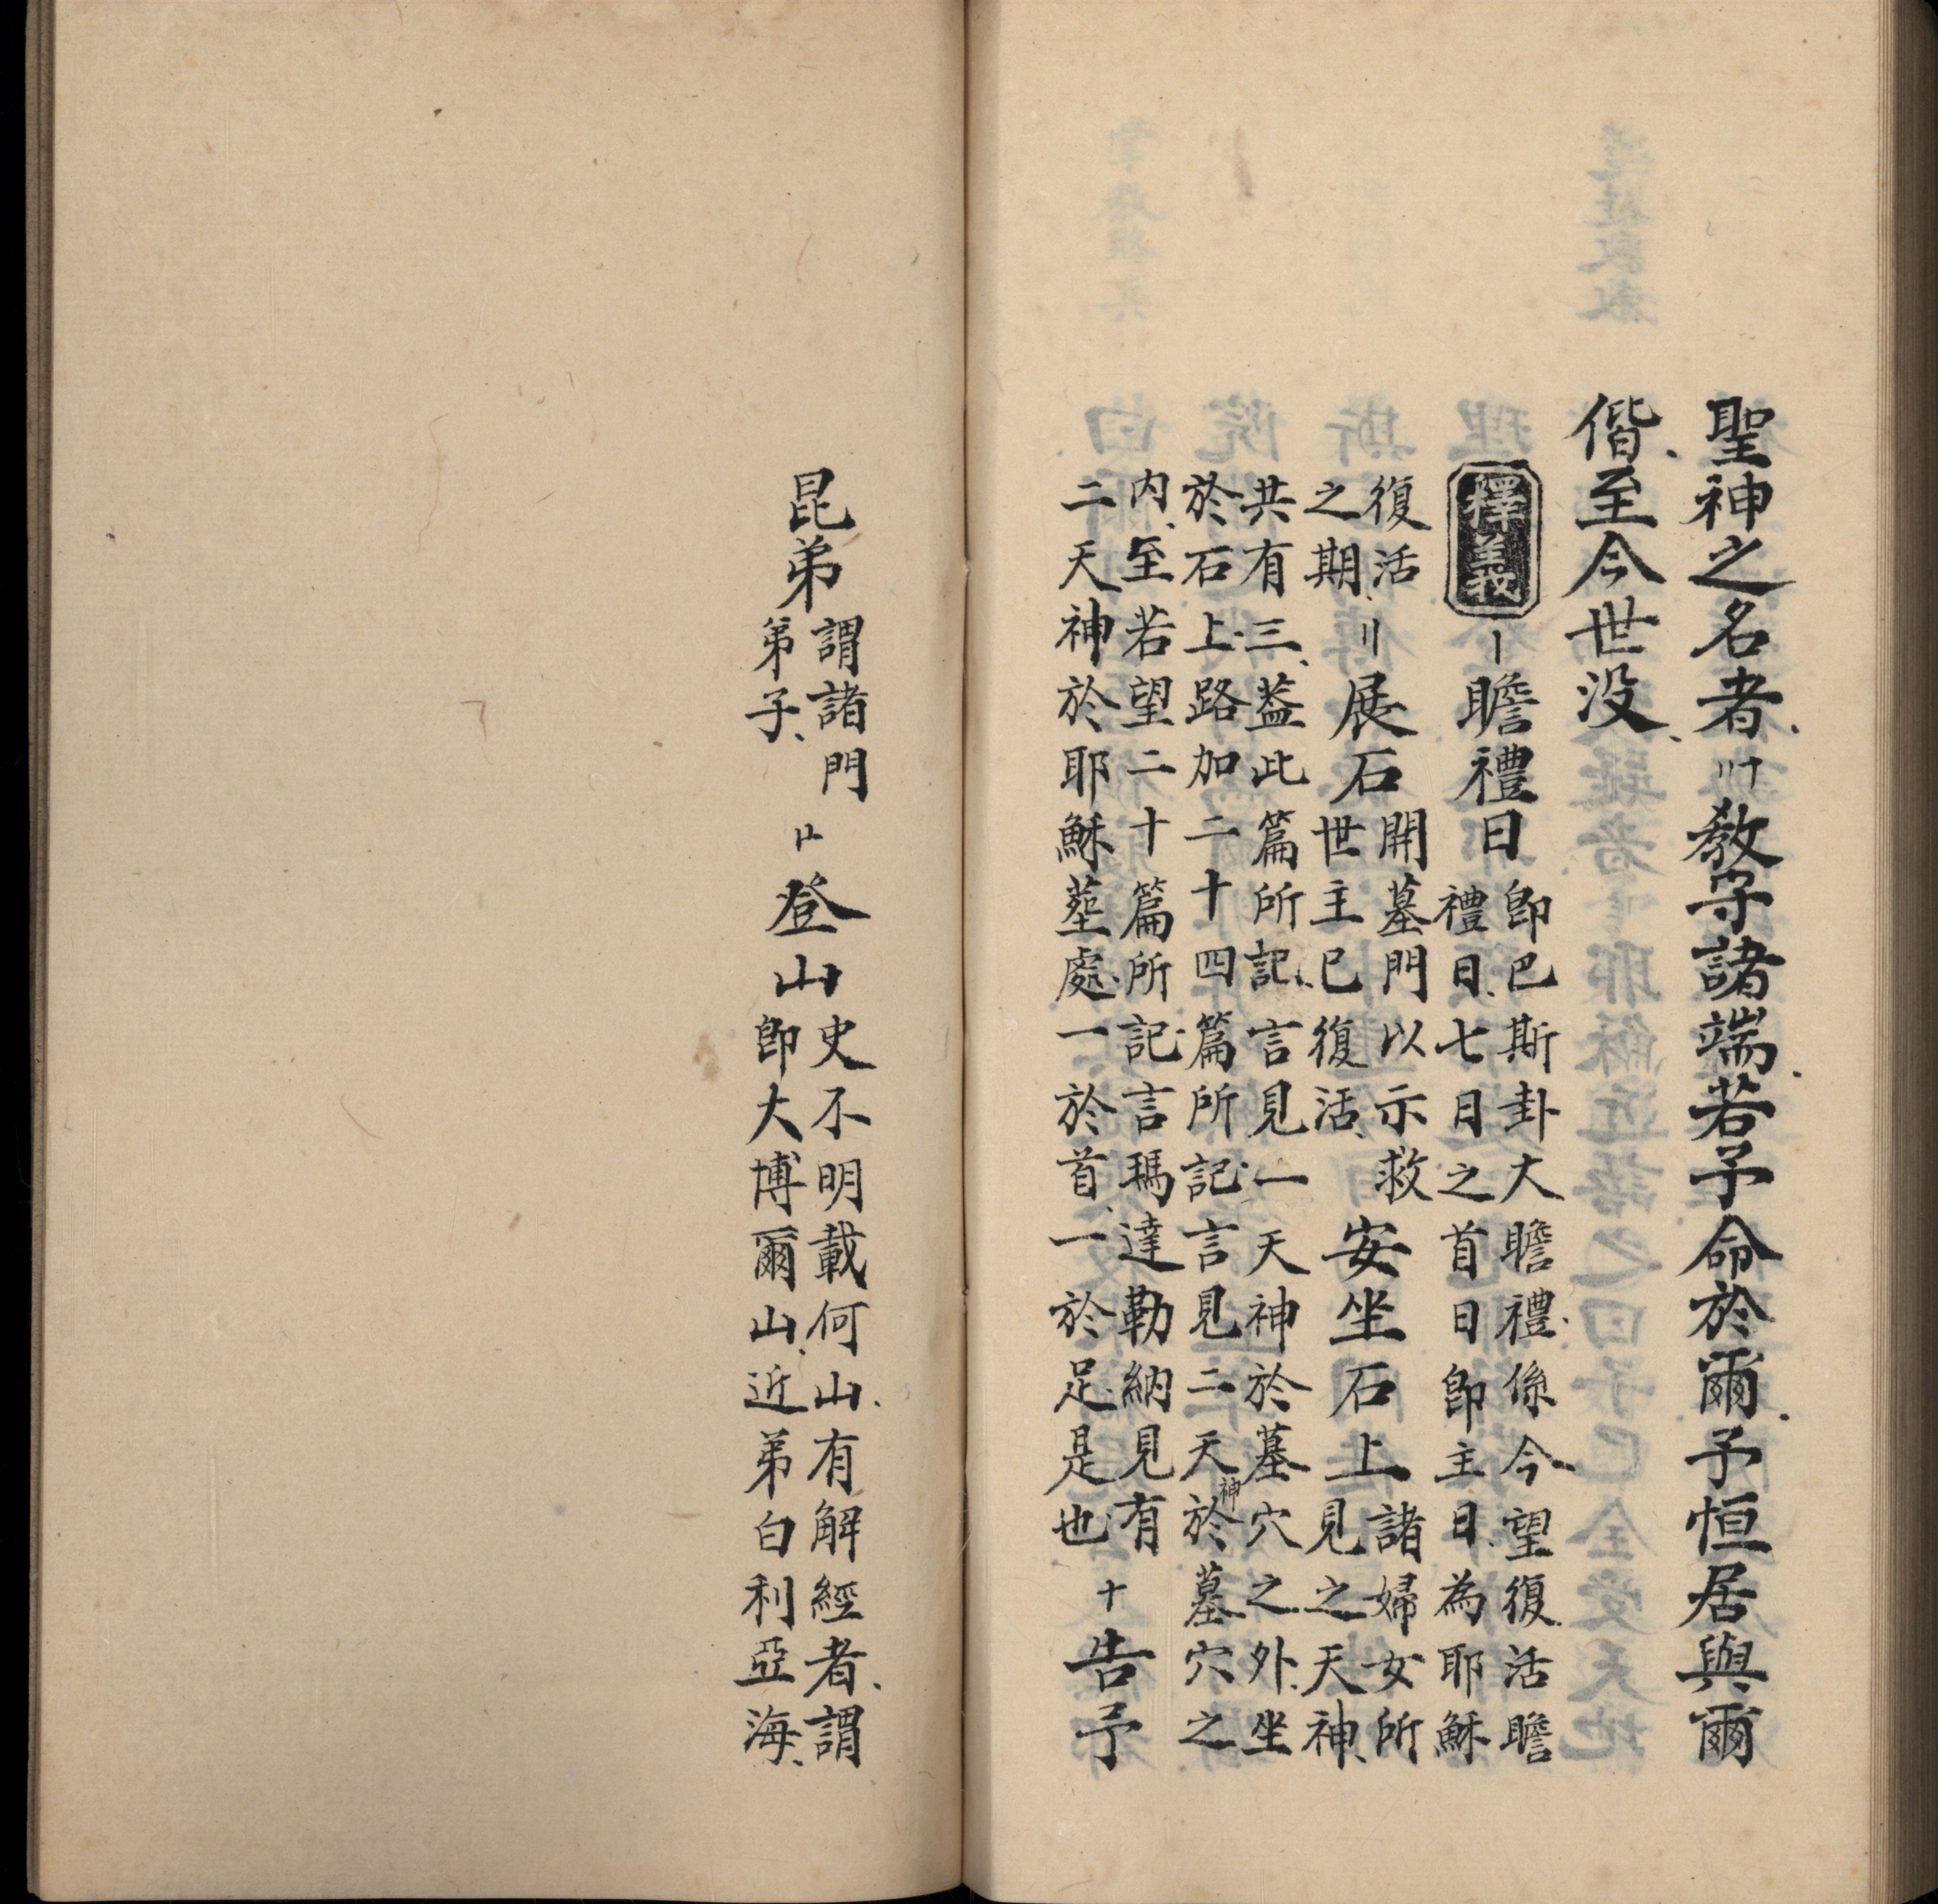 聖神之名者〣十教守諸端若予命於爾予恒居與爾
偕至今世没
釋義〡瞻禮日即巴斯卦大瞻禮係今望復活瞻
禮日七日之首日即主日為耶穌
復活〢展石開墓門以示救安坐石上諸婦女所
之期世主已復活見之天神
共有三葢此篇所記言見一天神於墓穴之外坐
於石上路加二十四篇所記言見二天神於墓穴之
内至若望二十篇所記言瑪達勒納見有
二天神於耶穌塟處一於首一於足是也十告予
昆弟謂諸門〢十登山史不明載何山有解經者謂
弟子即大博爾山近弟白利亞海